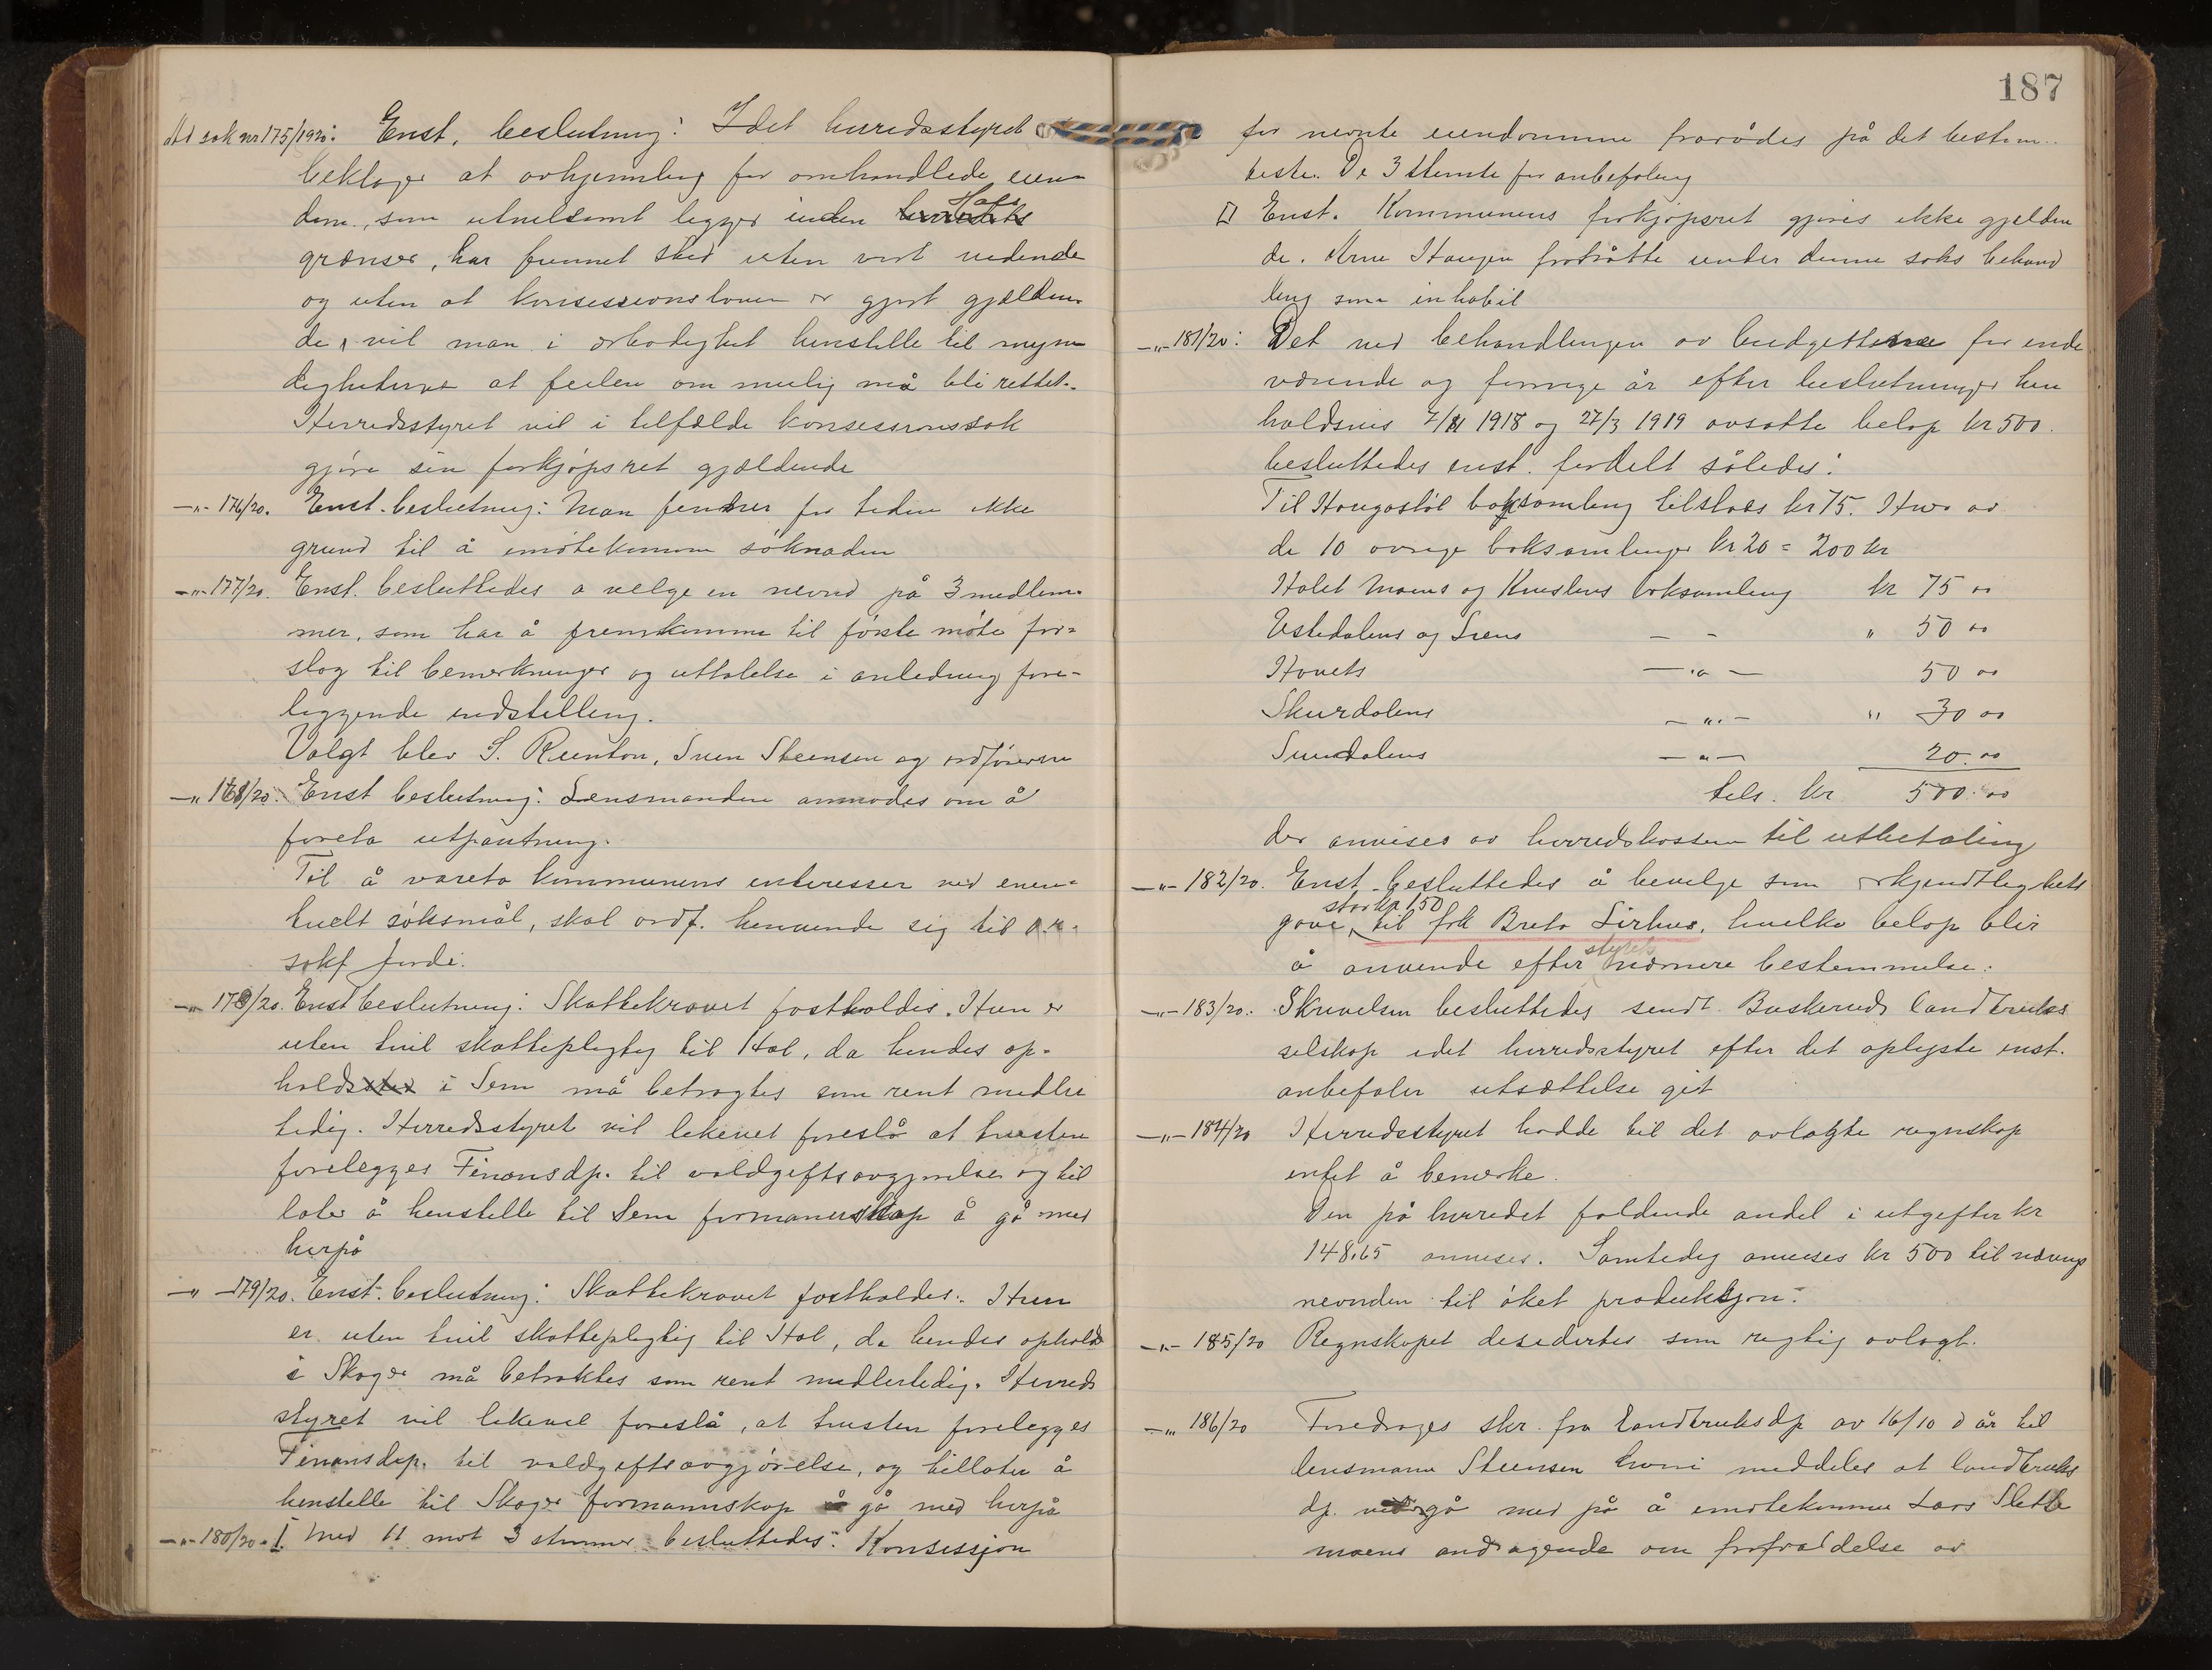 Ad sak nr 175/1920: Enst. beslutning: Idet herredsstyret
beklager at avhjemling for omhandlede eien
dom, som utvilsomt ligger inden Hols
grænser, har funnet sted uten vort vidende
og uten at konsessionsloven er gjort gjælden
de, vil man i ærbødighet henstille til myn
digheterne at feilen om mulig må bli rettet.
Herredsstyret vil i tilfælde konsessionssak
gjøre sin forkjøpsret gjældende
—"- 176/20. Enst. beslutning: Man finder for tiden ikke
grund til å imøtekomme søknaden
—"- 177/20. Enst. besluttedes a velge en nevnd på 3 medlem-
mer, som har å fremkomme til første møte for-
slag til bemerkninger og uttalelse i anledning fore-
liggende indstilling.
Valgt blev S. Reinton, Sven Steensen og ordføreren
—" 178/20. Enst beslutning: Lensmanden anmodes om å
foreta utpantning.
Til å vareta kommunens interesser ved even-
tuelt søksmål, skal ordf. henvende sig til o.r.
sakf Jorde.
—"- 178/20. Enst beslutning: Skattekravet fastholdes. Hun er
uten tvil skattepligtig til Hol, da hendes op-
holds i Sem må betragtes som rent midler
tidig. Herredsstyret vil likevel foreslå at tvisten
forelegges Finansdp. til voldgiftsavgjørelse og til
later å henstille til Sem formannskap å gå med
herpå
—" - 179/20. Enst. beslutning: Skattekravet fastholdes. Hun
er uten tvil skattepligtig til Hol, da hendes ophold
i Skoger må betraktes som rent midlertidig. Herreds
styret vil likevel foreslå, at tvisten forelegges
Finansdep. til voldgiftsavgjørelse, og tillater å
henstille til Skoger formannskap å gå med herpå
—"- 180/20. I. Med 11 mot 3 stemmer besluttedes: Konsessjon
187
for nevnte eiendomme frarådes på det bestem..
teste. De 3 stemte for anbefaling
II Enst. Kommunens forkjøpsret gjøres ikke gjelden
de. Arne Haugen fratrådte under denne saks behand
ling som inhabil
—"- 181/20: Det ved behandlingen av budgetterne for inde
værende og forrige år efter beslutninger hen
holdsvis 7/11 1918 og 27/3 1919 avsatte beløp kr 500.
besluttedes enst. fordelt således:
Til Haugastøl boksamling tilstaes kr 75. Hver av
de 10 øvrige boksamlinger kr 20 = 200 kr
Holet Moens og Kvislens boksamling kr 75 00
Ustedalens og Liens — - " 50 00
Hovets —"— 50 00
Skurdalens —"— " 30 00
Sundalens —"— 20.00
tils. kr 500.00
der anvises av herredskassen til utbetaling
—"- 182/20. Enst. besluttedes å bevilge som erkjendtlighets
gave, stor kr 150 til frk Breta Lirhus, hvilke beløp blir
å anvende efter styrets nærmere bestemmelse.
—"- 183/20. Skrivelsen besluttedes sendt Buskeruds landbruks
selskap idet herredsstyret efter det oplyste enst.
anbefaler utsættelse git
—"- 184/20 Herredsstyret hadde til det avlagte regnskap
intet å bemerke.
Den på herredet faldende andel i utgifter kr
148.65 anvises. Samtidig anvises kr 500 til nævngs
nevnden til øket produktsjon.
—"- 185/20 Regnskapet desidertes som rigtig avlagt.
—"- 186/20 Foredrages skr. fra Landbruksdp av 16/10 d år til
lensmann Steensen hvori meddeles at landbruks
dp. gå med på å imøtekomme Lars Slette
moens andragende om frafaldelse av